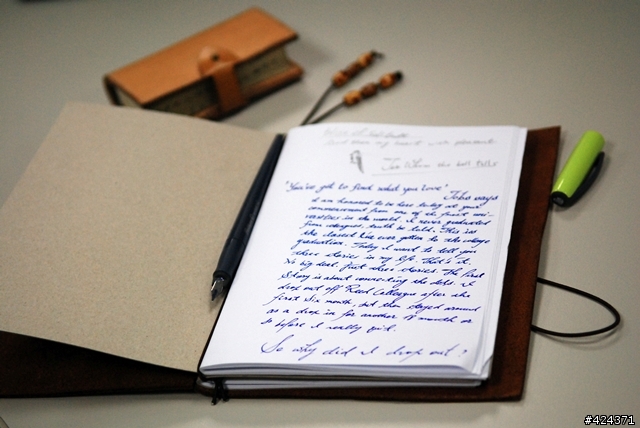 and then my heart with pleasure
For Whom the bell Tolls
"You've got to find what you love" Jobs says
I am honored to be here today at your
commencement from one of the finest uni-
versities in the world. I never graduated
from college. Truth be told. This is
the closest I've ever gotten to the college
graduation. Today I want to tell you
three stories in my life. That's it.
No big deal. Just three stories. The first
Story is about connecting the dots. I
drop out off Reed College after the
first six month, but then stayed around
as a drop in for another 18 month or
so before I really quit.
So why did I drop out?
#424371